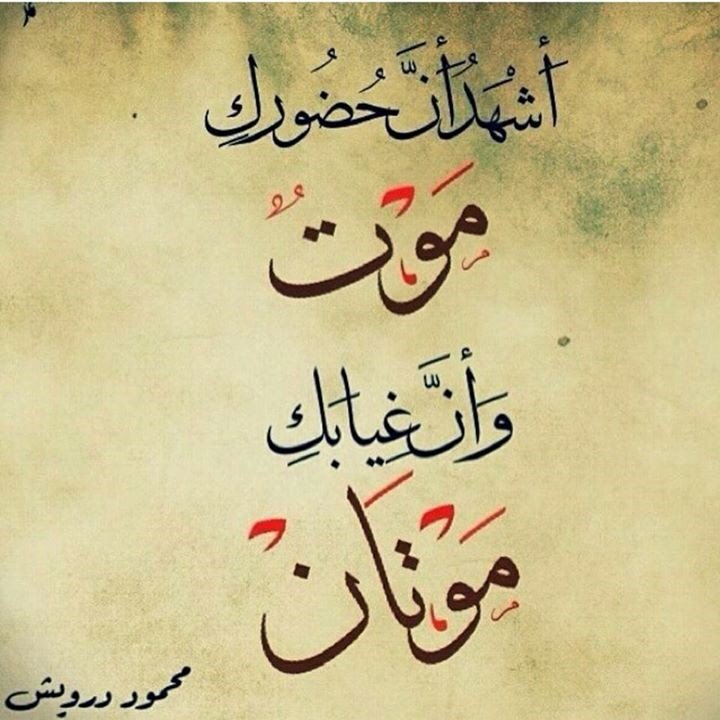 أَشْهَدُ أَنَّ حُضُورَكِ
مَوْتٌ
وَأَنَّ غِيَابَكِ
مَوْتَانْ
محمود درويش